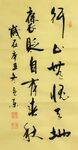 行止無愧天地
褒貶自有春秋
歲在